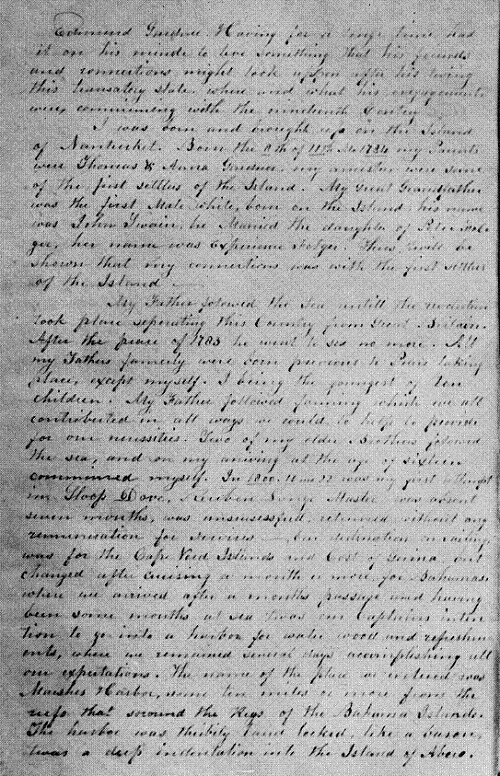 Edmund Gardner Having for a long time had
it on his minde to leve something that his friends
and connections might look upon after his leving
this transatory state where and what his engagements
were, commincing with the nineteenth Centry
I was born and brought up on the Island
of Nantucket. Born the 8th of 11th Mo 1784 my Parents
were Thomas & Anna Gardner, my ancestors were some
of the first settlers of the Island. My Great Grandfather
was the first Male White, born on the Island his name
was John Swain, he Married the daughter of Peter Fol-
ger, her name was Experience Folger. Thus twill be
shown that my connections was with the first settlers
of the Island
My Father folowed the Sea untill the revolution
took place seperating this Country from Great Britain.
After the peace of 1783 he went to sea no more. All
my Fathers family were born previous to Peace taking
place, except myself. I being the youngest of ten
children. My Father followed farming which we all
contributed in all ways we could to help to provide
for our nessities. Two of my older Brothers folowed
the sea, and on my ariving at the age of sixteen
commenced myself. In 1800. 10 mo 22 was my first attempt
in Sloop Dove, Reuben Master was absent
seven months, was unsucessfull, returned without any
remuneration for services. Our destination on sailing
was for the Cape Verd Islands and Cost of Guinea, but
changed after cruising a month or more, for Bahamas
where we arrived after a months passage and having
been some months at sea twas our Captains inten
tion to go into a harbor for water wood and refreshm
ents, where we remained several days accomplishing all
our expectations. The name of the place we entered was
Marshes Harbor, some ten miles or more from the
reefs that soround the Keys of the Bahama Islands.
The harbor was land locked, like a bason,
twas a deep indentation into the Island of Abaco.